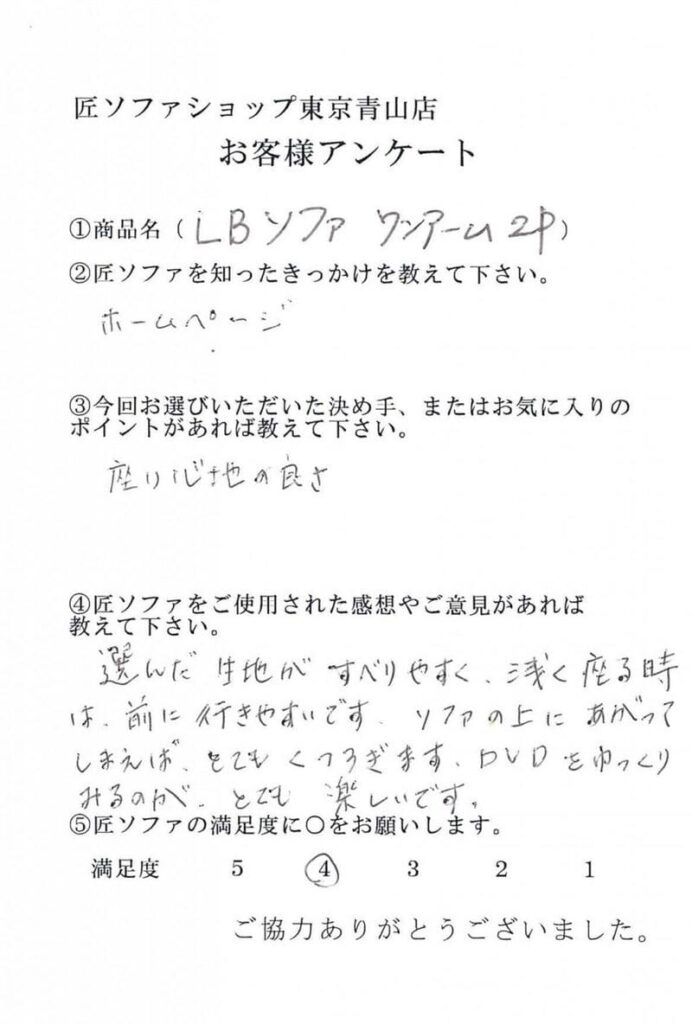 匠ソファショップ東京青山店
お客様アンケート
①商品名（LBソファ ワンアーム2P）
②匠ソファを知ったきっかけを教えて下さい。
ホームページ
③今回お選びいただいた決め手、またはお気に入りの
ポイントがあれば教えて下さい。
座り心地の良さ
④匠ソファをご使用された感想やご意見があれば
教えて下さい。
選んだ生地がすべりやすく、浅く座る時
は、前に行きやすいです。ソファの上にあがって
しまえば、とてもくつろぎます。DVDをゆっくり
みるのが、とても楽しいです。
⑤匠ソファの満足度に〇をお願いします。
満足度 5 4 3 2 1
ご協力ありがとうございました。